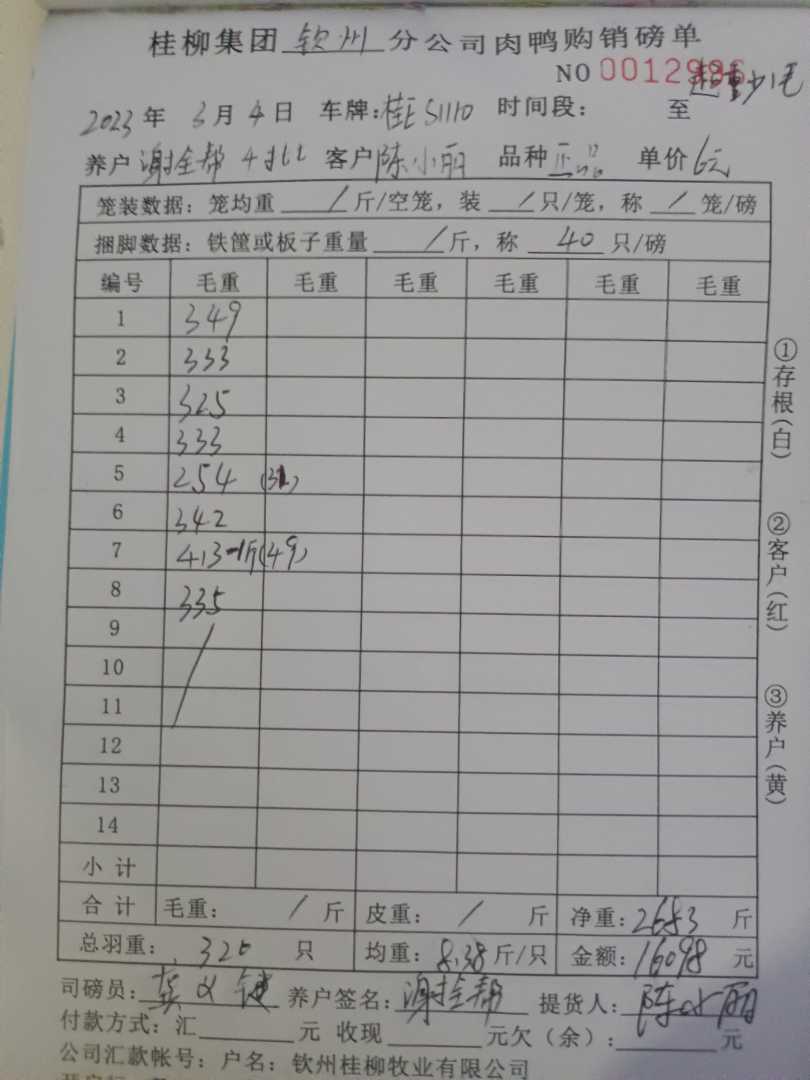 桂柳集团 钦州 分公司肉鸭购销磅单
NO 0012986 超重少1毛
2023年 3月 4日 车牌:桂E51110 时间段: 至
养户 谢全帮 4批 客户 陈小丽 品种 正品 单价 6元
笼装数据:笼均重 / 斤/空笼,装 / 只/笼,称 / 笼/磅
捆脚数据:铁筐或板子重量 / 斤,称 40 只/磅
编号 毛重 毛重 毛重 毛重 毛重 毛重
1 349
2 333
3 325
4 333
5 254 (31)
6 342
7 413-1斤(49)
8 335
9
10
11
12
13
14
小计
合计 毛重: / 斤 皮重: / 斤 净重:2683 斤
总羽重: 320 只 均重:8.38斤/只 金额:16098 元
司磅员: 养户签名:谢全帮 提货人:陈小丽
付款方式:汇 元 收现 元欠(余): 元
公司汇款帐号:户名:钦州桂柳牧业有限公司
①存根(白)
②客户(红)
③养户(黄)